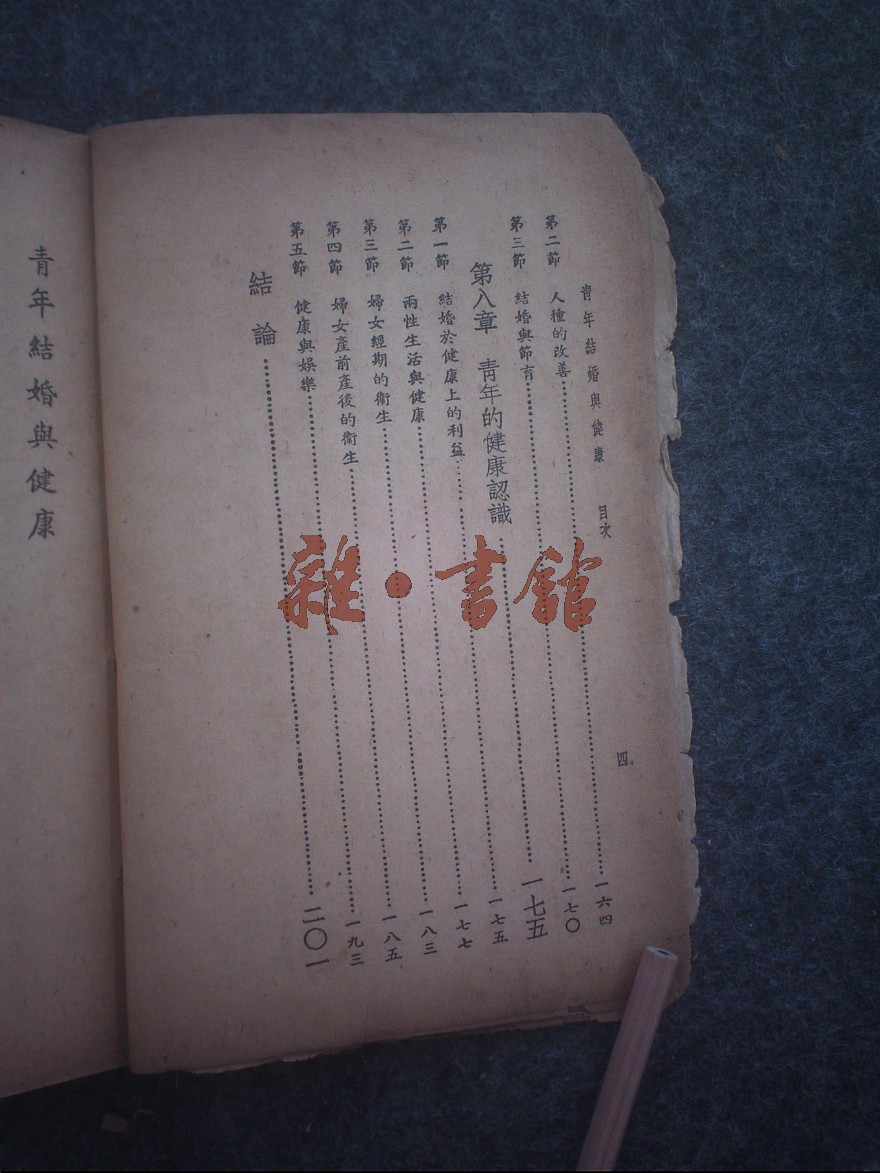 青年結婚與健康　目次　四
第二節　人種的改善…………一六四
第三節　結婚與節育…………一七〇
第八章　青年的健康認識…………一七五
第一節　結婚於健康上的利益…………一七五
第二節　兩性生活與健康…………一七七
第三節　婦女經期的衞生…………一八三
第四節　婦女產前產後的衞生…………一八五
第五節　健康與娛樂…………一九三
結論…………二〇一
青年結婚與健康
雜·書館